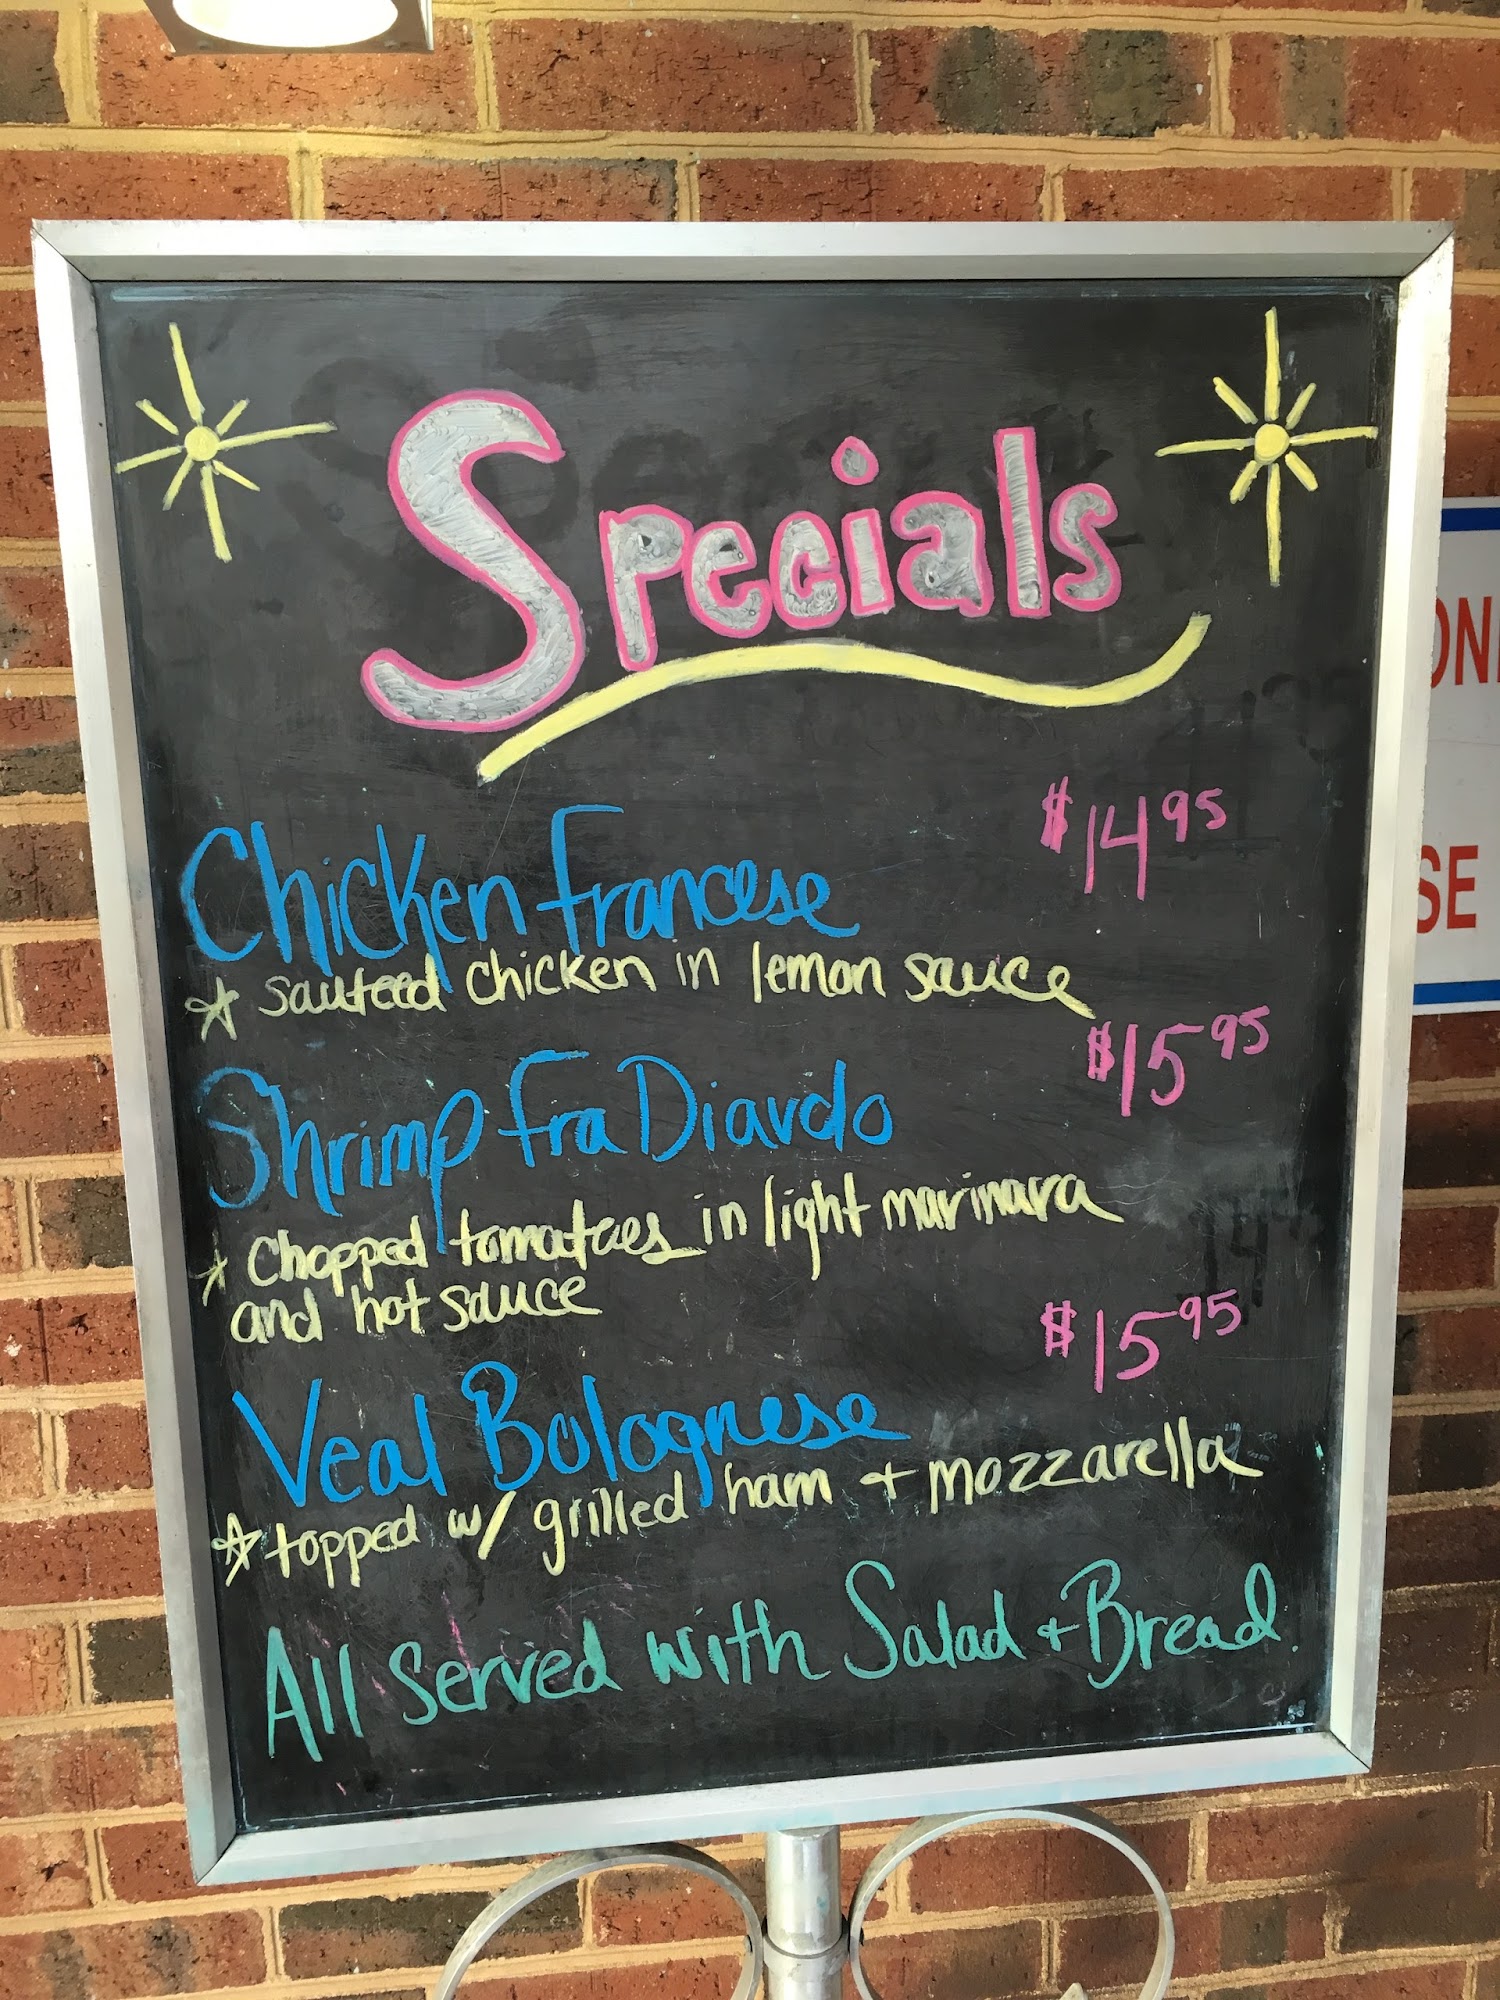 Specials
$14.95
Chicken Francese
* Sauteed chicken in lemon sauce
$15.95
Shrimp Fra Diavdo
* Chopped tomatoes in light marinara
and hot sauce
$15.95
Veal Bolognese
* topped w/ grilled ham + mozzarella
All Served with Salad + Bread.
SE